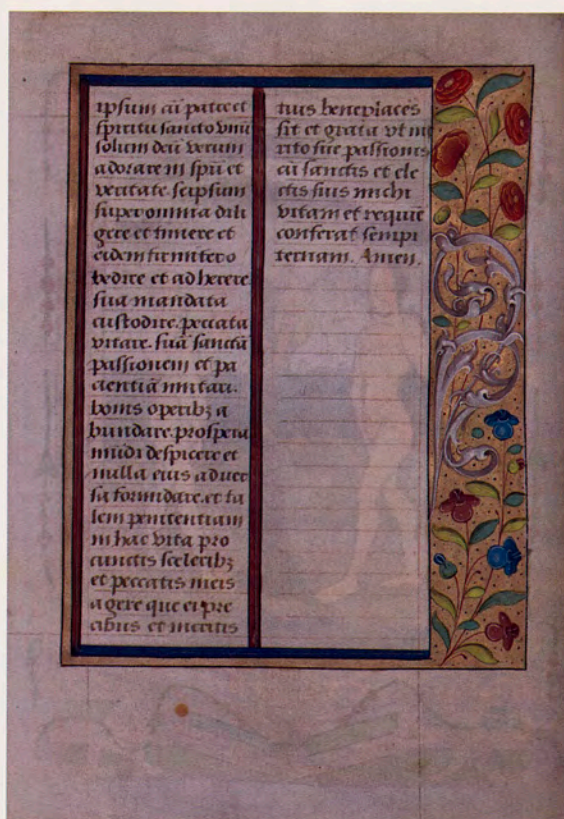 ipsum cū patre et
spiritu sancto vnū
solum deū verum
adorare in spū et
veritate seipsum
super omnia dili
gere et timere et
eidem firmiter o
bedire et adherere
sua mandata
custodire. peccata
vitare. suā sanctā
passionem et pa
cientiā imitari.
bonis operibꝫ a
bundare. prospera
mūdi despicere et
nulla eius aduer
sa formidare. et ta
lem penitentiam
in hac vita pro
cunctis sceleribꝫ
et peccatis meis
agere que ei pre
cibus et meritis
tuis beneplacēs
sit et grata vt me
rito sue passionis
cū sanctis et ele
ctis suis michi
vitam et requiē
conferat sempi
ternam. Amen.